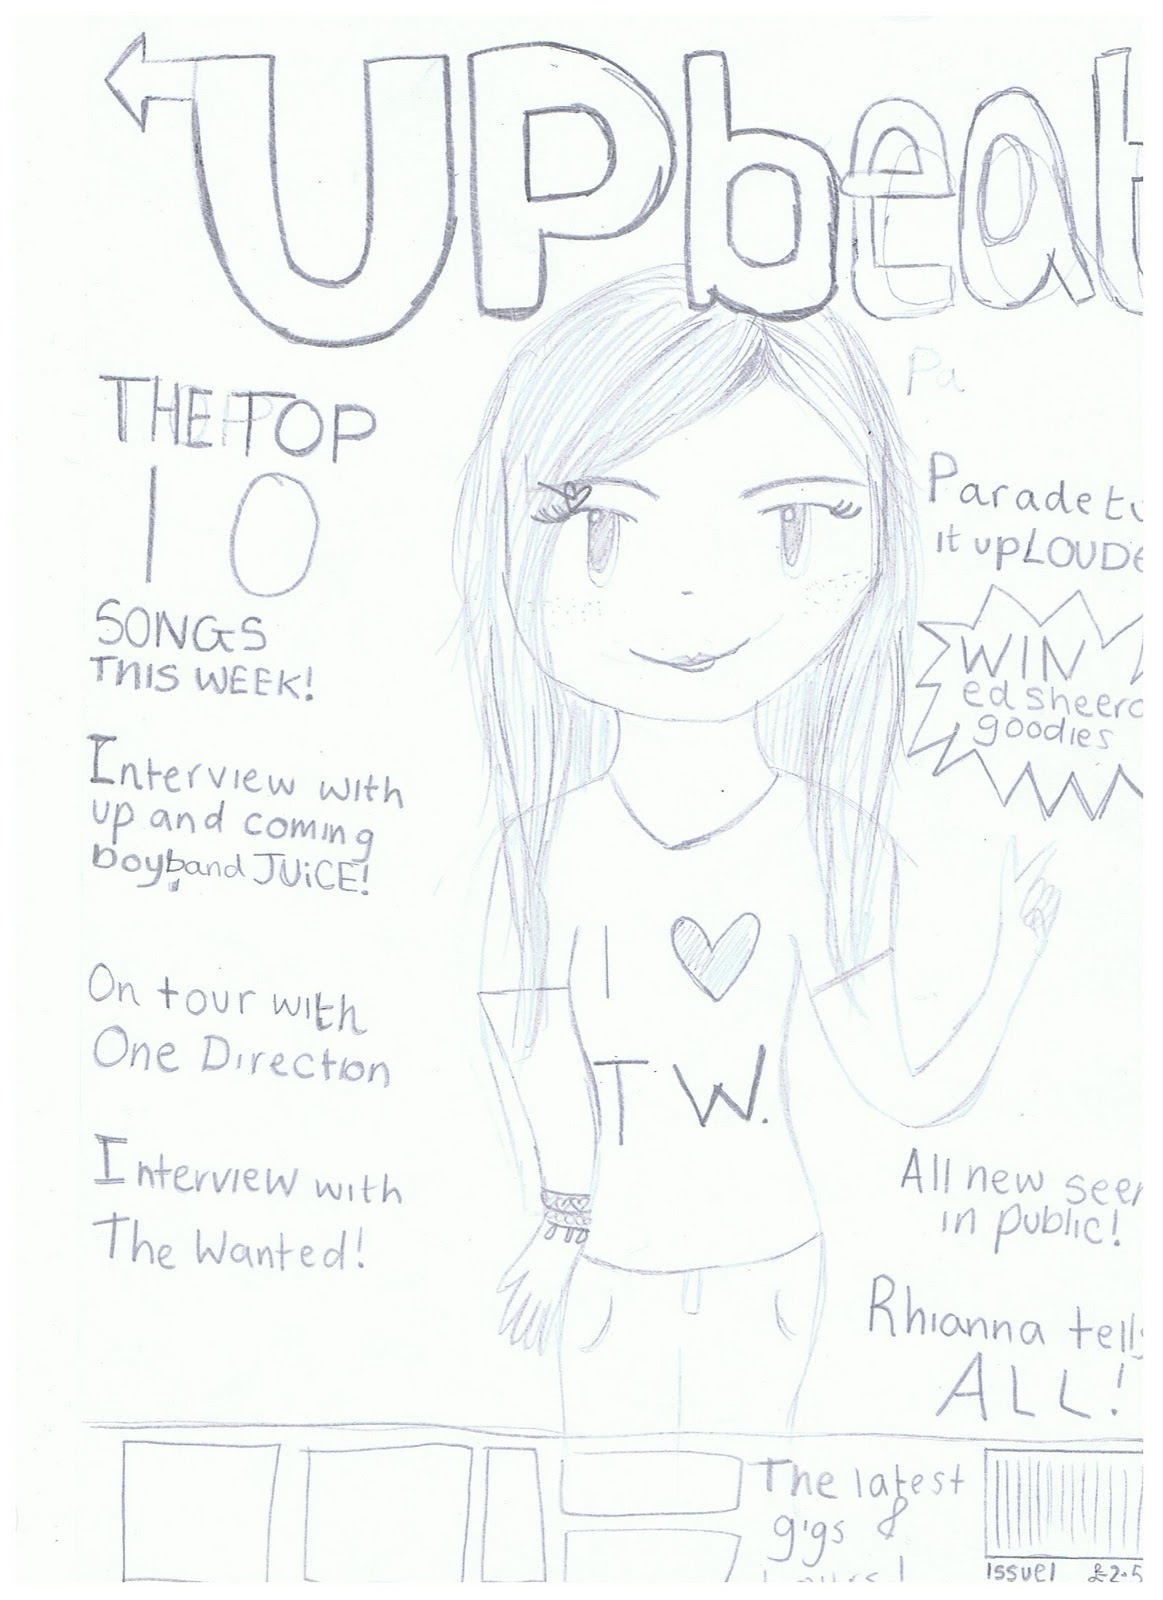 UPbeat
THE TOP
10
SONGS
THIS WEEK!
Interview with
up and coming
boyband JUiCE!
On tour with
One Direction
Interview with
The Wanted!
Pa
Parade tu
it up LOUDe
WIN
ed sheera
goodies
I ♥
TW.
All new seen
in public!
Rhianna tells
ALL!
The latest
gigs &
Issue1 £2.5